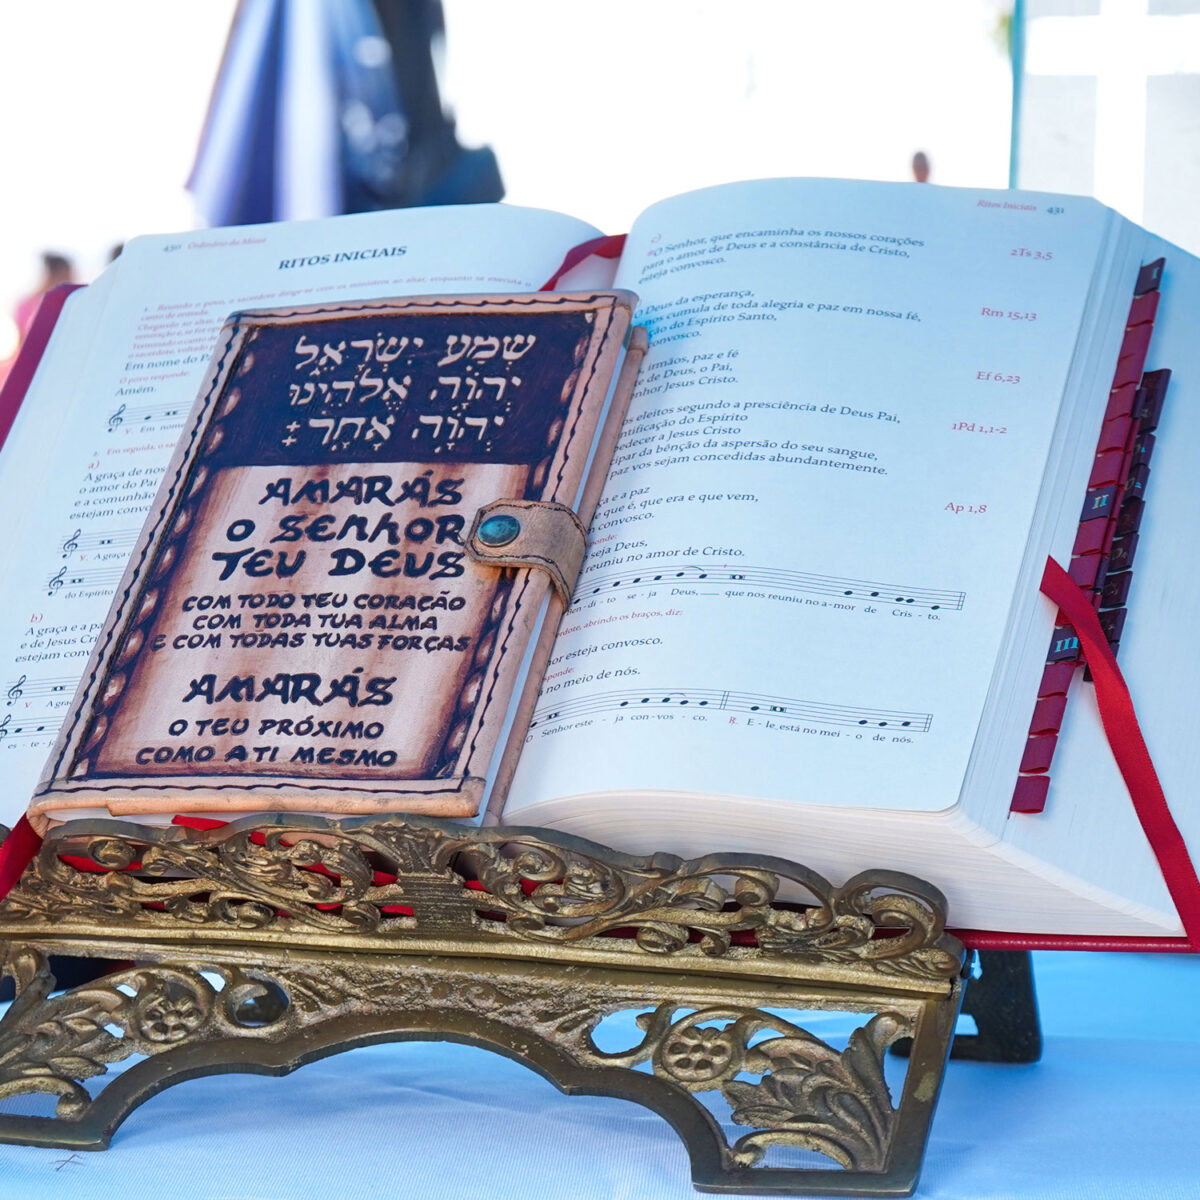 450 Ordinário da Missa
RITOS INICIAIS
1. Reunido o povo, o sacerdote dirige-se com os ministros ao altar, enquanto se executa o
canto de entrada.
Chegando ao altar,
Em nome do Pa
O povo responde:
Amém.
V. Em nome
2. Em seguida, o
a)
A graça de nos
o amor do Pai
e a comunhão
estejam convo
V. A graça
do Espírito
b)
A graça e a pa
e de Jesus Cri
estejam convo
V. A gra
es - te - j
שְׁמַע יִשְׂרָאֵל
יְהוָה אֱלֹהֵינוּ
יְהוָה אֶחָד:
AMARÁS
O SENHOR
TEU DEUS
COM TODO TEU CORAÇÃO
COM TODA TUA ALMA
E COM TODAS TUAS FORÇAS
AMARÁS
O TEU PRÓXIMO
COMO A TI MESMO
Ritos Iniciais 431
c)
O Senhor, que encaminha os nossos corações
para o amor de Deus e a constância de Cristo,
esteja convosco.
2Ts 3,5
O Deus da esperança,
nos cumula de toda alegria e paz em nossa fé,
ção do Espírito Santo,
convosco.
Rm 15,13
irmãos, paz e fé
te de Deus, o Pai,
enhor Jesus Cristo.
Ef 6,23
os eleitos segundo a presciência de Deus Pai,
ntificação do Espírito
bedecer a Jesus Cristo
cipar da bênção da aspersão do seu sangue,
paz vos sejam concedidas abundantemente.
1Pd 1,1-2
ça e a paz
e que é, que era e que vem,
convosco.
Ap 1,8
ponde:
seja Deus,
reuniu no amor de Cristo.
Ben - di - to se - ja Deus, que nos reuniu no a - mor de Cris - to.
dote, abrindo os braços, diz:
hor esteja convosco.
sponde:
á no meio de nós.
O Senhor este - ja con - vos - co. R. E - le está no mei - o de nós.
I
II
III